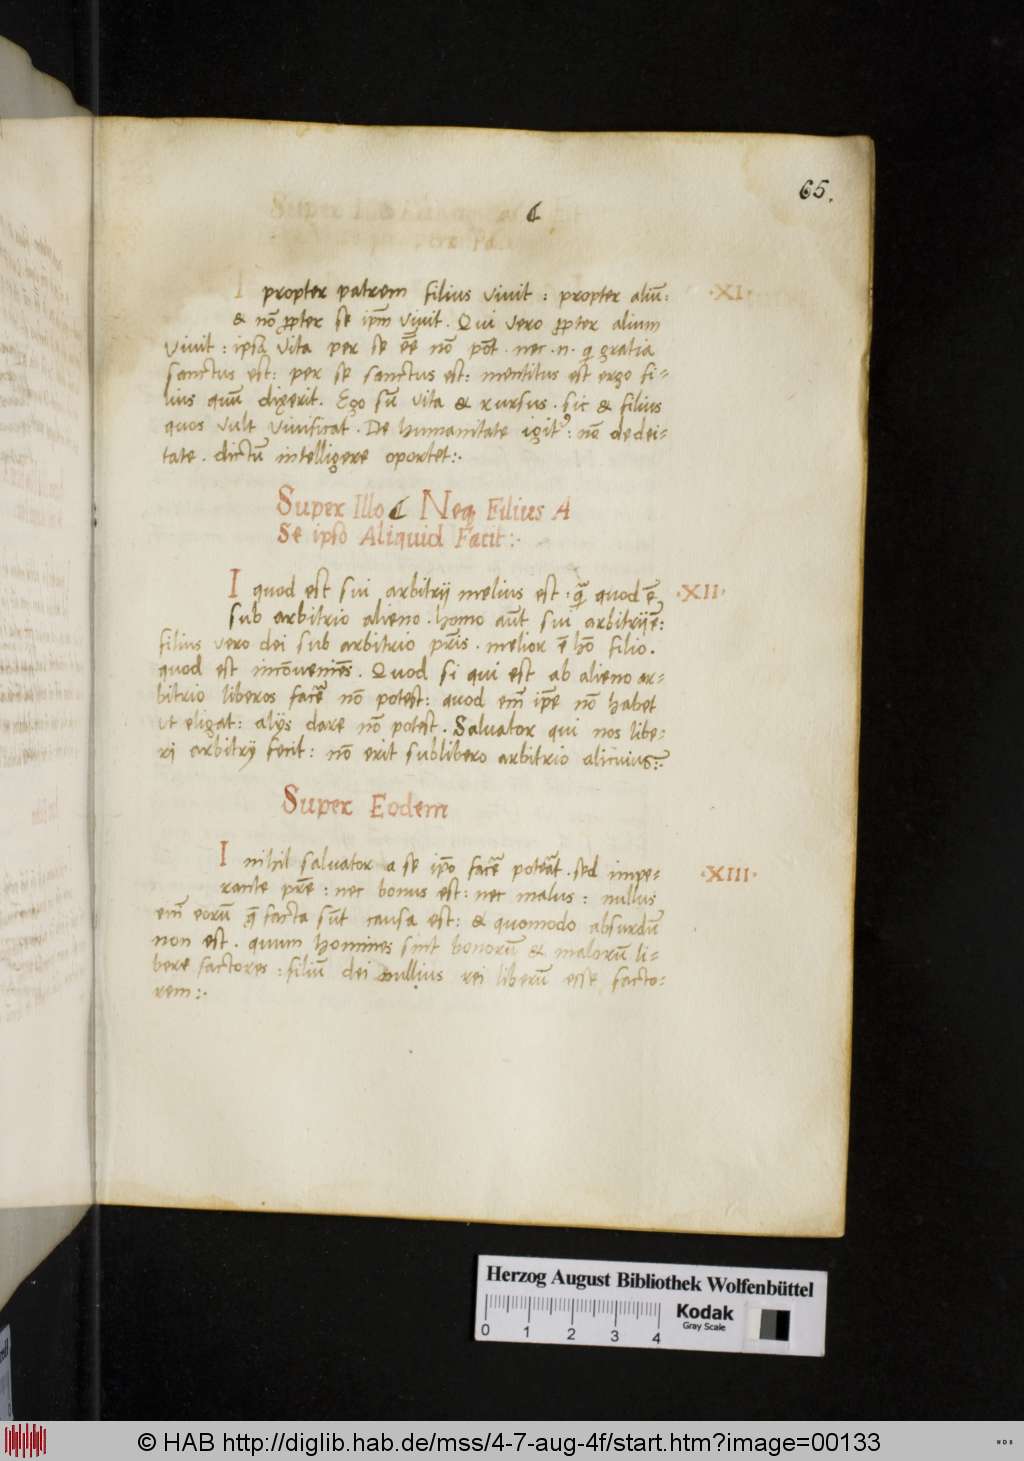 65.
I propter patrem filius vivit : propter aliū: ·XI·
& nō ꝓpter se ip̄m vivit . Qui vero ꝓpter alium
vivit : ipsa vita per se eē nō pōt . nec .n. q gratia
sanctus est: per se sanctus est: mentitus est ergo fi=
lius quū dixerit . Ego sū vita & rursus . sic & filius
quos vult vivificat . De humanitate igitᷣ : nō dedei=
tate . dictū intelligere oportet:·
Super Illo ₡ Neq Filius A
Se ipso Aliquid Facit:·
I quod est sui arbitrij melius est : q̄ quod ē ·XII·
sub arbitrio alieno . homo aūt sui arbitrijē:
filius vero dei sub arbitrio pr̄is . melior ē hō filio.
quod est incōveniēs . Quod si qui est ab alieno ar=
bitrio liberos facē nō potest: quod em̄ ip̄e nō habet
ut eligat : alijs dare nō potest . Salvator qui nos libe=
rj arbitrij fecit : nō erit sublibero arbitrio alicuius:·
Super Eodem
I nihil salvator a se ip̄o facē poteāt . sed impe= ·XIII·
rante pr̄e : nec bonus est : nec malus : nullus
em̄ eorū q̄ facta sūt causa est : & quomodo absurdū
non est . quum homines sint bonorū & malorū li=
bere factores : filiū dei nullius rei liberū esse facto=
rem:·
Herzog August Bibliothek Wolfenbüttel
0 1 2 3 4
Kodak
Gray Scale
© HAB http://diglib.hab.de/mss/4-7-aug-4f/start.htm?image=00133